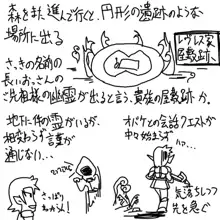 森をまた進んで行くと、円形の遺跡のような
場所に出る
さっきの名前の
長いおっさんの
ご先祖様の幽霊が出ると言う貴族の屋敷跡か。
屋敷跡
地下に一体の霊がいるが、
相変わらず言葉が
通じない…
オバケとの会話クエストが
中々始まらず…
さっぱり
わからん!
気落ちしつつ
先を急ぐ